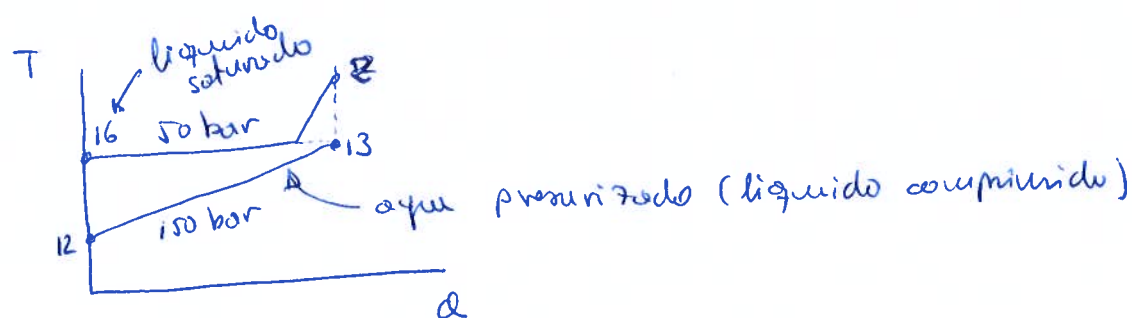 T
liquido
saturado
16
50 bar
13
150 bar
12
agua presurizada (liquido comprimido)
Q